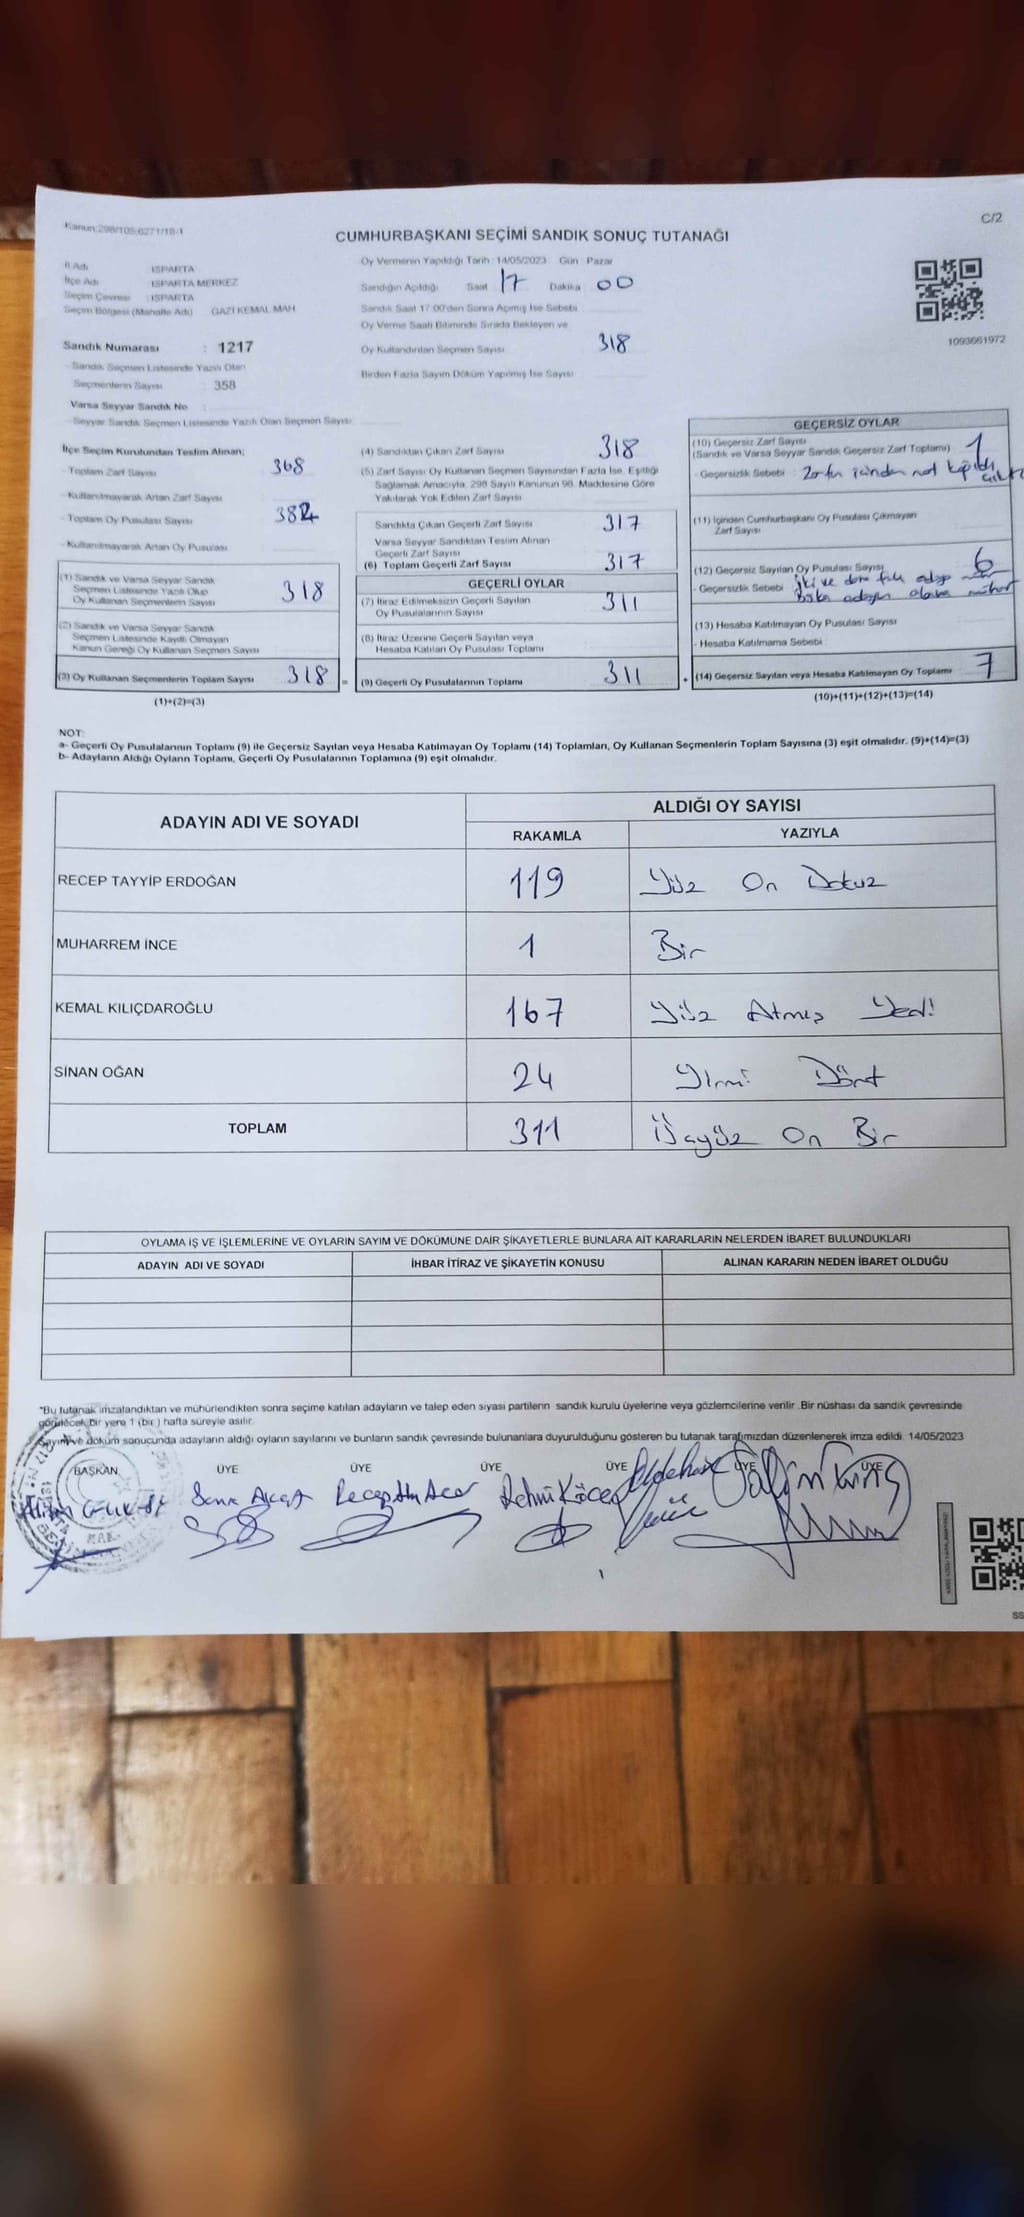 Kanun:298/105;6271/18-1
C/2
CUMHURBAŞKANI SEÇİMİ SANDIK SONUÇ TUTANAĞI
İl Adı ISPARTA
İlçe Adı ISPARTA MERKEZ
Seçim Çevresi : ISPARTA
Seçim Bölgesi (Mahalle Adı) GAZİ KEMAL MAH
Sandık Numarası : 1217
Sandık Seçmen Listesinde Yazılı Olan
Seçmenlerin Sayısı : 358
Varsa Seyyar Sandık No :
Seyyar Sandık Seçmen Listesinde Yazılı Olan Seçmen Sayısı:
Oy Vermenin Yapıldığı Tarih : 14/05/2023 Gün : Pazar
Sandığın Açıldığı Saat 17 Dakika 00
Sandık Saat 17:00'den Sonra Açımış İse Sebebi :
Oy Verme Saati Bitiminde Sırada Bekleyen ve
Oy Kullandırılan Seçmen Sayısı 318
Birden Fazla Sayım Döküm Yapılmış İse Sayısı
1093661972
İlçe Seçim Kurulundan Teslim Alınan;
- Toplam Zarf Sayısı 368
- Kullanılmayarak Artan Zarf Sayısı
- Toplam Oy Pusulası Sayısı 382
- Kullanılmayarak Artan Oy Pusulası
(1) Sandık ve Varsa Seyyar Sandık
Seçmen Listesinde Yazılı Olup
Oy Kullanan Seçmenlerin Sayısı 318
(2) Sandık ve Varsa Seyyar Sandık
Seçmen Listesinde Kayıtlı Olmayan
Kanun Gereği Oy Kullanan Seçmen Sayısı
(3) Oy Kullanan Seçmenlerin Toplam Sayısı 318
(1)+(2)=(3)
(4) Sandıktan Çıkan Zarf Sayısı 318
(5) Zarf Sayısı Oy Kullanan Seçmen Sayısından Fazla İse, Eşitliği
Sağlamak Amacıyla, 298 Sayılı Kanunun 98. Maddesine Göre
Yakılarak Yok Edilen Zarf Sayısı
Sandıkta Çıkan Geçerli Zarf Sayısı 317
Varsa Seyyar Sandıktan Teslim Alınan
Geçerli Zarf Sayısı
(6) Toplam Geçerli Zarf Sayısı 317
GEÇERLİ OYLAR
(7) İtiraz Edilmeksizin Geçerli Sayılan
Oy Pusulalarının Sayısı 311
(8) İtiraz Üzerine Geçerli Sayılan veya
Hesaba Katılan Oy Pusulası Toplamı
= (9) Geçerli Oy Pusulalarının Toplamı 311
GEÇERSİZ OYLAR
(10) Geçersiz Zarf Sayısı
(Sandık ve Varsa Seyyar Sandık Geçersiz Zarf Toplamı) 1
- Geçersizlik Sebebi : Zarfın içinden not çıktı
(11) İçinden Cumhurbaşkanı Oy Pusulası Çıkmayan
Zarf Sayısı
(12) Geçersiz Sayılan Oy Pusulası Sayısı 6
- Geçersizlik Sebebi İki ve daha fazla adaya mühür
(13) Hesaba Katılmayan Oy Pusulası Sayısı
- Hesaba Katılmama Sebebi
+ (14) Geçersiz Sayılan veya Hesaba Katılmayan Oy Toplamı 7
(10)+(11)+(12)+(13)=(14)
NOT:
a- Geçerli Oy Pusulalarının Toplamı (9) ile Geçersiz Sayılan veya Hesaba Katılmayan Oy Toplamı (14) Toplamları, Oy Kullanan Seçmenlerin Toplam Sayısına (3) eşit olmalıdır. (9)+(14)=(3)
b- Adayların Aldığı Oyların Toplamı, Geçerli Oy Pusulalarının Toplamına (9) eşit olmalıdır.
ADAYIN ADI VE SOYADI
ALDIĞI OY SAYISI
RAKAMLA YAZIYLA
RECEP TAYYİP ERDOĞAN 119 Yüz On Dokuz
MUHARREM İNCE 1 Bir
KEMAL KILIÇDAROĞLU 167 Yüz Atmış Yedi
SİNAN OĞAN 24 Yirmi Dört
TOPLAM 311 Üçyüz On Bir
OYLAMA İŞ VE İŞLEMLERİNE VE OYLARIN SAYIM VE DÖKÜMÜNE DAİR ŞİKAYETLERLE BUNLARA AİT KARARLARIN NELERDEN İBARET BULUNDUKLARI
ADAYIN ADI VE SOYADI İHBAR İTİRAZ VE ŞİKAYETİN KONUSU ALINAN KARARIN NEDEN İBARET OLDUĞU
*Bu tutanak imzalandıktan ve mühürlendikten sonra seçime katılan adayların ve talep eden siyasi partilerin sandık kurulu üyelerine veya gözlemcilerine verilir. Bir nüshası da sandık çevresinde
görülecek bir yere 1 (bir) hafta süreyle asılır.
Sayım ve döküm sonucunda adayların aldığı oyların sayılarını ve bunların sandık çevresinde bulunanlara duyurulduğunu gösteren bu tutanak tarafımızdan düzenlenerek imza edildi. 14/05/2023
BAŞKAN ÜYE ÜYE ÜYE ÜYE ÜYE ÜYE